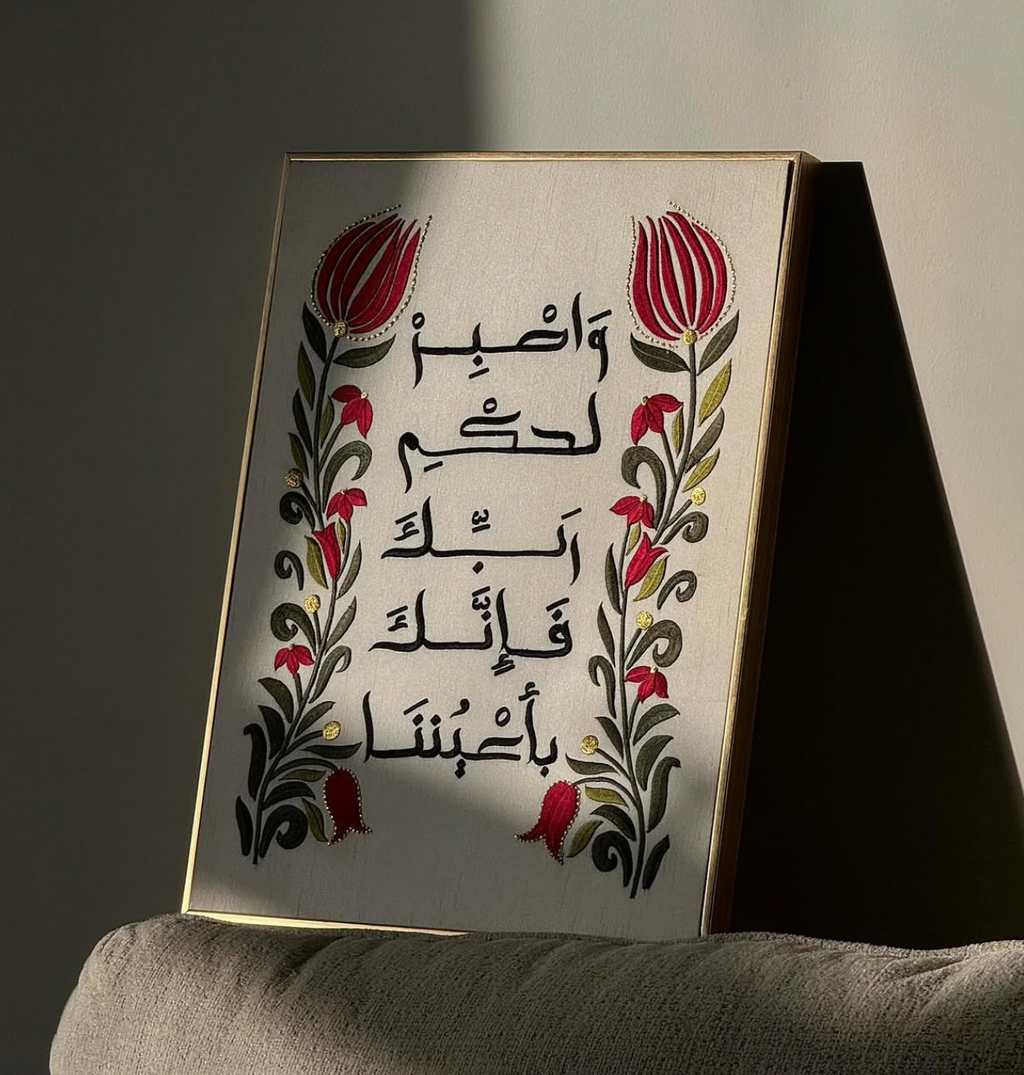 وَاصْبِرْ
لحكْمِ
رَبِّكَ
فَإِنَّكَ
بأَعْيُننَا